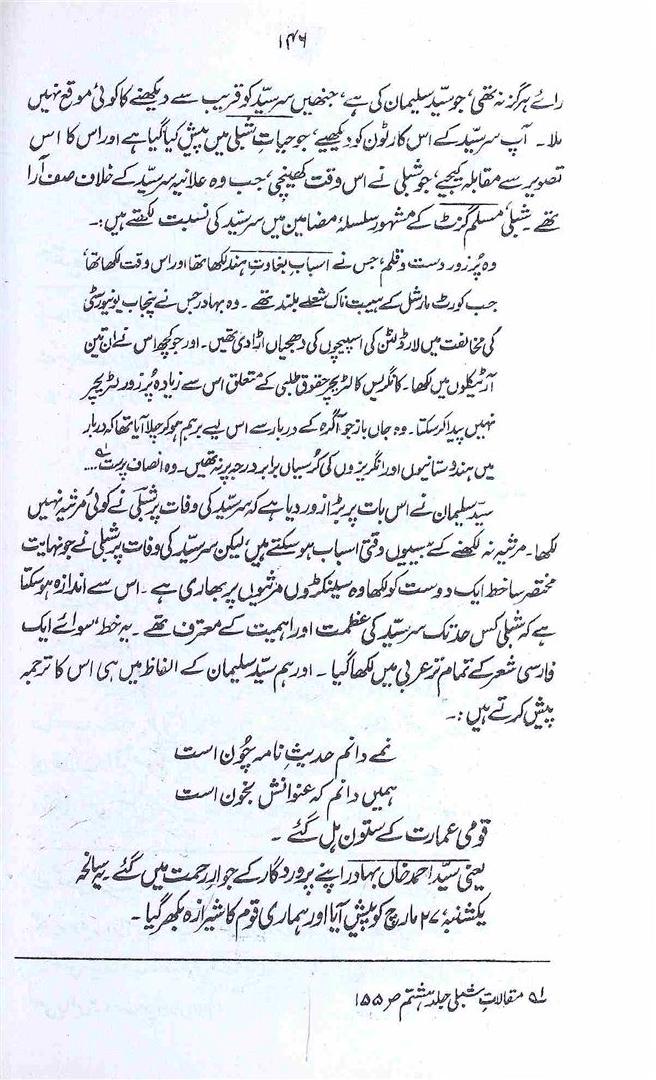 ۱۴۶
رائے ہرگز نہ تھی، جو سیّد سلیمان کی ہے، جنھیں سرسیّد کو قریب سے دیکھنے کا کوئی موقع نہیں
ملا۔ آپ سرسیّد کے اس کارٹون کو دیکھیے، جو حیاتِ شبلی میں پیش کیا گیا ہے اور اس کا اس
تصویر سے مقابلہ کیجیے، جو شبلی نے اس وقت کھینچی، جب وہ علانیہ سرسیّد کے خلاف صف آرا
تھے۔ شبلی مسلم گزٹ کے مشہور سلسلۂ مضامین میں سرسیّد کی نسبت لکھتے ہیں:۔
وہ پُر زور دست و قلم، جس نے اسبابِ بغاوتِ ہند لکھا تھا اور اس وقت لکھا تھا،
جب کورٹ مارشل کے ہیبت ناک شعلے بلند تھے۔ وہ بہادر جس نے پنجاب یونیورسٹی
کی مخالفت میں لارڈ لٹن کی اسپیچوں کی دھجیاں اڑا دی تھیں۔ اور جو کچھ اس نے ان تین
آرٹیکلوں میں لکھا۔ کانگریس کا لٹریچر حقوق طلبی کے متعلق اس سے زیادہ پُر زور لٹریچر
نہیں پیدا کر سکتا۔ وہ جاں باز جو آگرہ کے دربار سے اس لیے برہم ہو کر چلا آیا تھا کہ دربار
میں ہندوستانیوں اور انگریزوں کی کُرسیاں برابر درجہ پر نہ تھیں۔ وہ انصاف پرست ۱؎....
سیّد سلیمان نے اس بات پر بڑا زور دیا ہے کہ سرسیّد کی وفات پر شبلی نے کوئی مرثیہ نہیں
لکھا۔ مرثیہ نہ لکھنے کے بیسیوں وقتی اسباب ہو سکتے ہیں، لیکن سرسیّد کی وفات پر شبلی نے جو نہایت
مختصر سا خط ایک دوست کو لکھا وہ سینکڑوں مرثیوں پر بھاری ہے۔ اس سے اندازہ ہو سکتا
ہے کہ شبلی کس حد تک سرسیّد کی عظمت اور اہمیت کے معترف تھے۔ یہ خط، سوائے ایک
فارسی شعر کے تمام تر عربی میں لکھا گیا۔ اور ہم سیّد سلیمان کے الفاظ میں ہی اس کا ترجمہ
پیش کرتے ہیں:۔
نمے دانم حدیثِ نامہ چُون است
ہمیں دانم کہ عنوانش بخون است
قومی عمارت کے ستون ہل گئے۔
یعنی سیّد احمد خاں بہادر اپنے پروردگار کے جوارِ رحمت میں گئے۔ یہ سانحہ
یکشنبہ ۲۷ مارچ کو پیش آیا اور ہماری قوم کا شیرازہ بکھر گیا۔
۱؎ مقالاتِ شبلی جلد ہشتم ص ۱۵۵